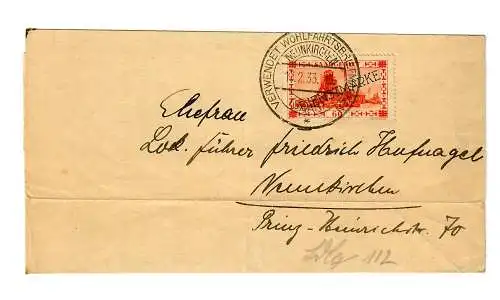 VERWENDET WOHLFAHRTSBRIEFMARKEN
NEUNKIRCHEN
2.33.
60
Ehefrau
Lok. Führer Friedrich Hufnagel
Neunkirchen
Prinz-Heinrichstr. 70
112